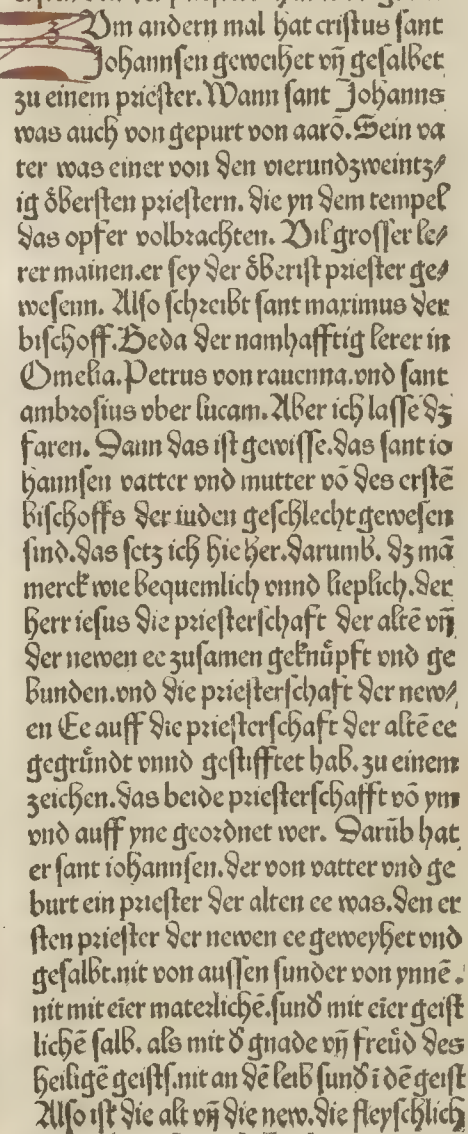 Zum andern mal hat cristus sant
Johannsen geweihet vn̄ gesalbet
zu einem priester. Wann sant Johanns
was auch von gepurt von aarō. Sein va
ter was einer von den vierundzweintz⸗
ig öbersten priestern. die yn dem tempel
das opfer volbrachten. Vil grosser le⸗
rer mainen. er sey der öberist priester ge⸗
wesenn. Also schreibt sant maximus der
bischoff. Beda der namhafftig lerer in
Omelia. Petrus von rauenna. vnd sant
ambrosius vber lucam. Aber ich lasse dz
faren. Dann das ist gewisse. das sant io
hannsen vatter vnd mutter vō des erstē
bischoffs der iuden geschlecht gewesen
sind. das setz ich hie her. darumb. dz mā
merck wie bequemlich vnnd lieplich. der
herr iesus die priesterschaft der altē vn̄
der newen ee zusamen geknu̇pft vnd ge
bunden. vnd die priesterschaft der new⸗
en Ee auff die priesterschaft der altē ee
gegru̇ndt vnnd gestifftet hab. zu einem
zeichen. das beide priesterschafft vō ym
vnd auff yne geordnet wer. Darūb hat
er sant iohannsen. der von vatter vnd ge
burt ein priester der alten ee was. den er
sten priester der newen ee geweyhet vnd
gesalbt. nit von aussen sunder von ynnē.
nit mit eīer materlichē. sund̄ mit eīer geist
lichē salb. als mit d̄ gnade vn̄ freu̇d des
heiligē geists. nit an dē leib sund̄ ī dē geist
Also ist die alt vn̄ die new. die fleyschlich